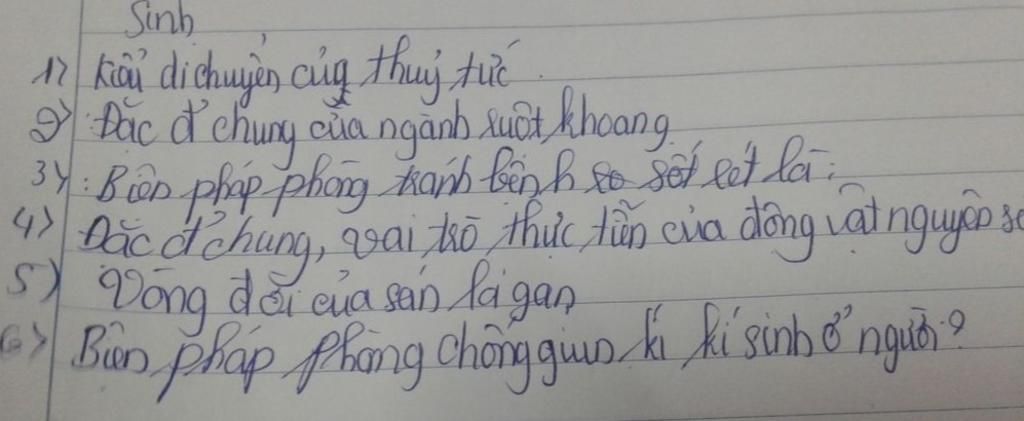 Sinh
1> Kiểu di chuyển của thuỷ tức.
2> Đặc đ' chung của ngành ruột khoang
3>: Biện pháp phòng tránh bệnh sốt rét là:
4> Đặc đ' chung, vai trò thực tiễn của động vật nguyên s
5> Vòng đời của sán lá gan
6> Biện pháp phòng chống giun kí sinh ở người?